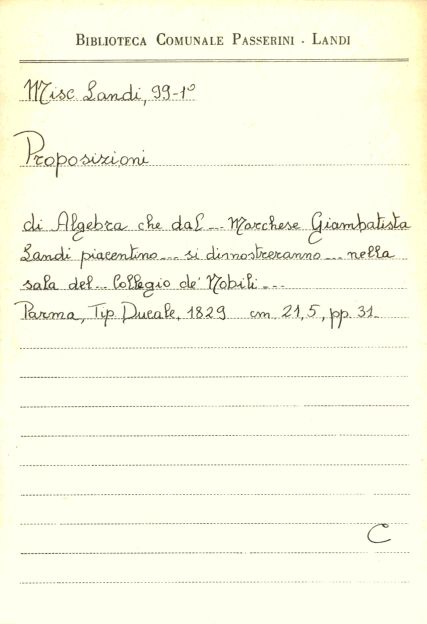 BIBLIOTECA COMUNALE PASSERINI - LANDI
Misc Landi, 99-1°
Proposizioni
di Algebra che dal ... Marchese Giambatista
Landi piacentino ... si dimostreranno ... nella
sala del ... Collegio de' Nobili ...
Parma, Tip. Ducale, 1829 cm. 21,5, pp. 31.
C